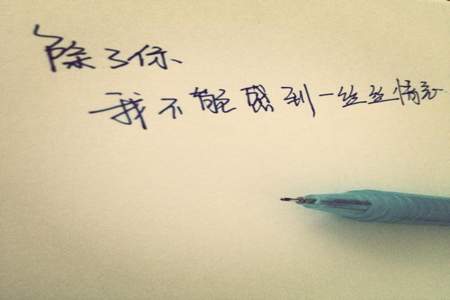 除了你、
我不能感到一丝丝情意